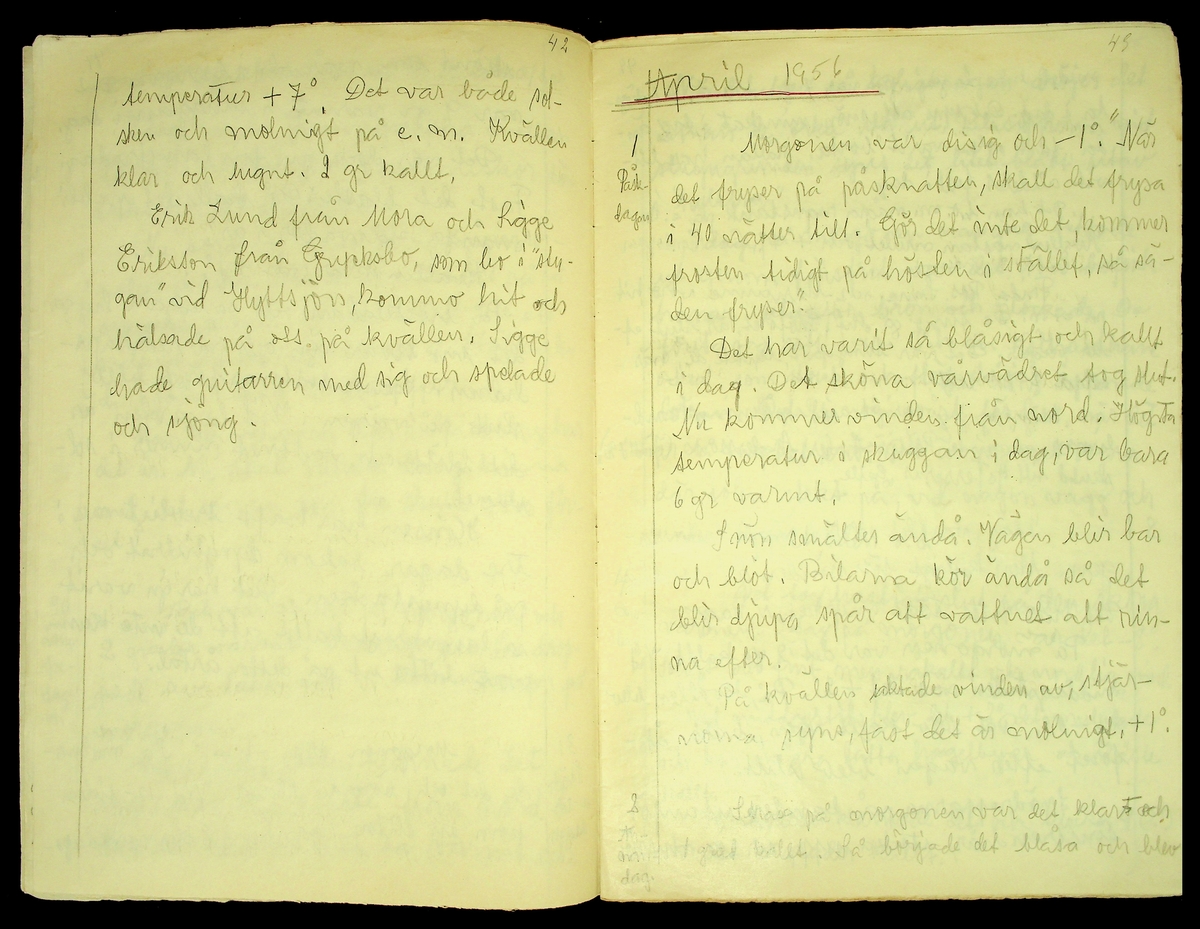 42
temperatur + 7°. Det var både sol-
sken och molnigt på e. m. Kvällen
klar och lugnt. 2 gr kallt.
Erik Lund från Mora och Sigge
Eriksson från Grycksbo, som bo i "stu-
gan" vid Hyttsjön, kommo hit och
hälsade på oss på kvällen. Sigge
hade guitarren med sig och spelade
och sjöng.
43
April 1956
1
Påsk-
dagen
Morgonen var disig och -1°. "När
det fryser på påsknatten, skall det frysa
i 40 nätter till. Gör det inte det, kommer
frosten tidigt på hösten i stället, så sä-
den fryser".
Det har varit så blåsigt och kallt
i dag. Det sköna vårvädret tog slut.
Nu kommer vinden från nord. Högsta
temperatur i skuggan i dag, var bara
6 gr varmt.
Snön smälter ändå. Vägen blir bar
och blöt. Bilarna kör ändå så det
blir djupa spår att vattnet att rin-
na efter.
På kvällen saktade vinden av, stjär-
norna syns, fast det är molnigt, +1°.
Strax på morgonen var det klart och
kallt. Så började det blåsa och blev
dag.